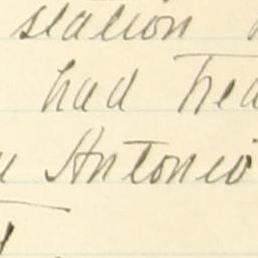 station
had
Antonio